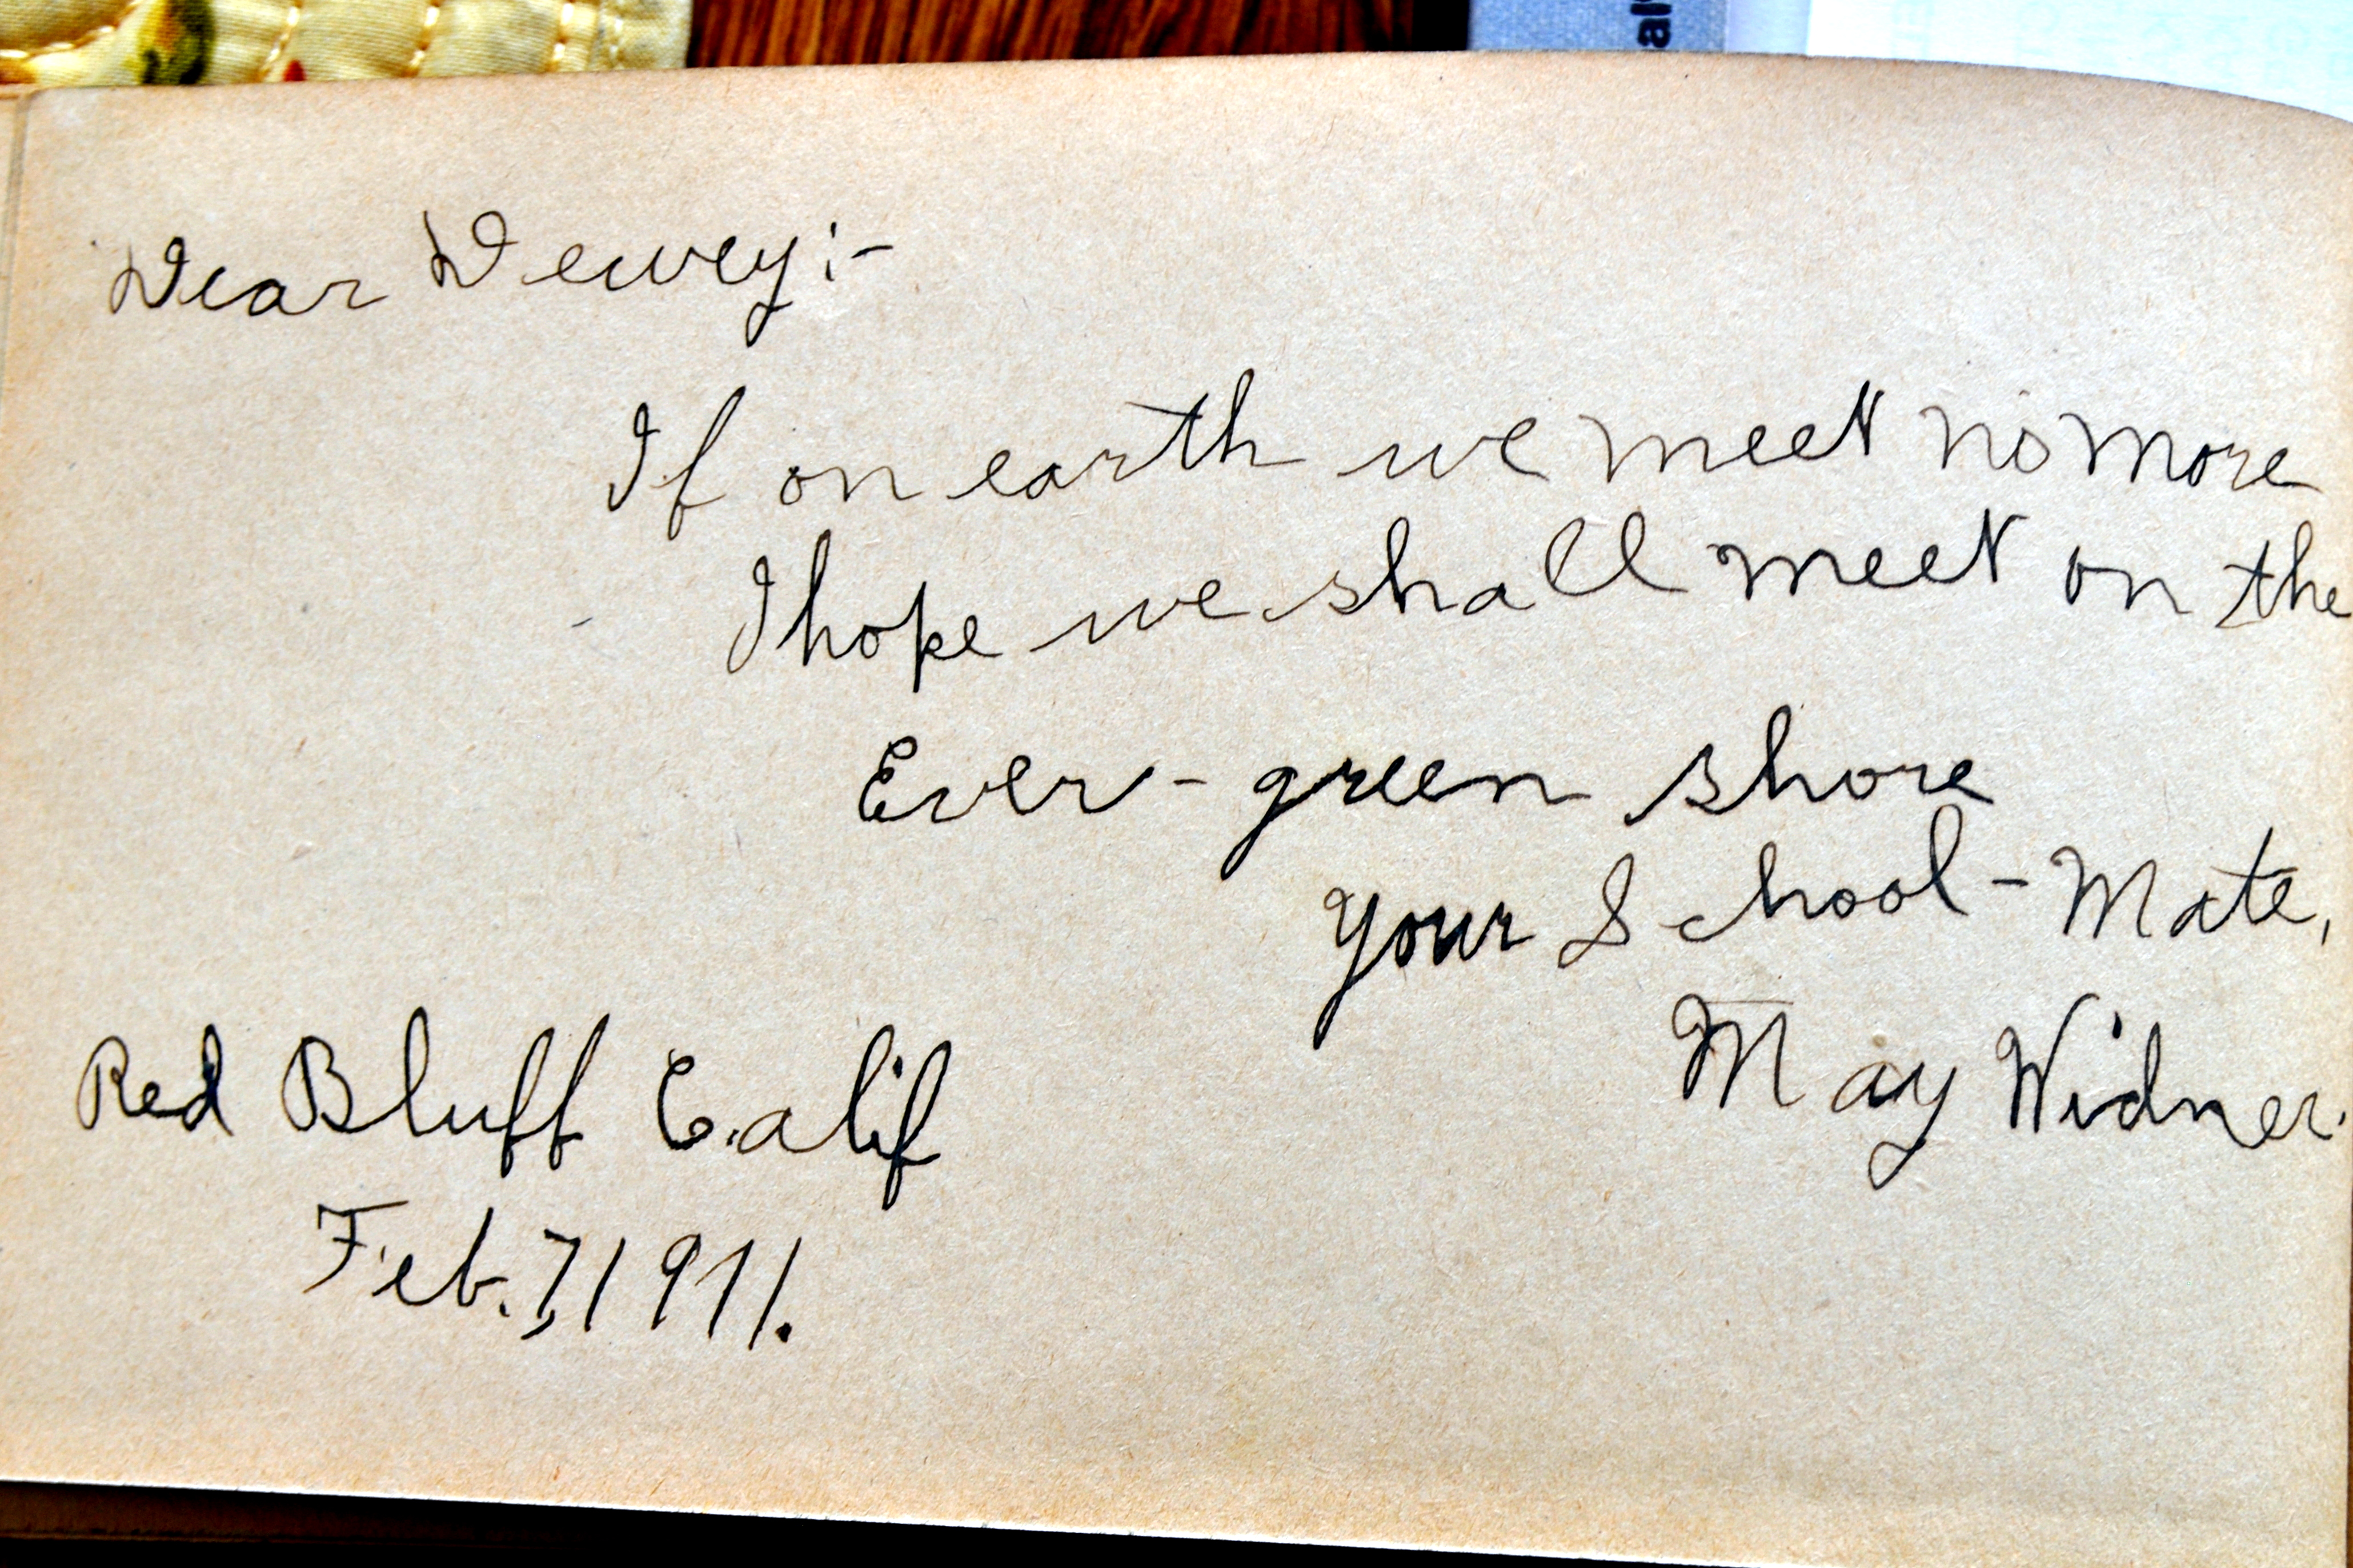 Dear Dewey:-
If on earth we meet no more
I hope we shall meet on the
Ever-green shore
Your School-Mate,
May Widner.
Red Bluff Calif
Feb. 7, 1911.